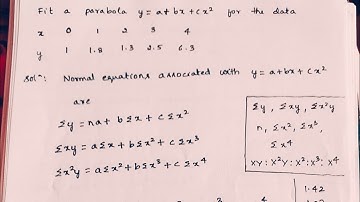 Fit a parabola y = a + bx + cx² for the data
x 0 1 2 3 4
y 1 1.8 1.3 2.5 6.3
Solⁿ: Normal equations associated with y = a+bx + cx²
are
Σy = na + bΣx + cΣx²
Σxy = aΣx + bΣx² + cΣx³
Σx²y = aΣx² + bΣx³ + cΣx⁴
Σy, Σxy, Σx²y
n, Σx², Σx³,
Σx⁴
XY: X²Y: X²: X³: X⁴
1.42